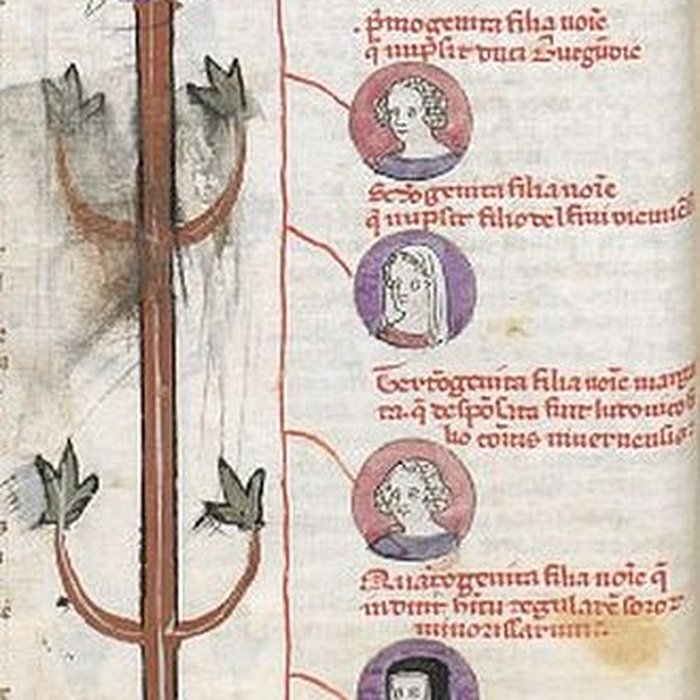 .p̄mogenita filia noīe
q̄ nupsit duci Burgūdie
Scd̄ogenita filia noīe
q̄ nupsit filio delfini vienñ
Terc̄ogenita filia noīe marga
ta q̄ despōsata fuit ludovico
comitis nivernensis
Quartogenita filia noīe q̄
induit hītū regularē soroꝝ
minorissarum